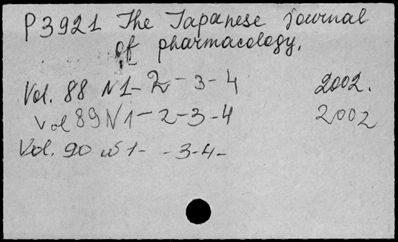 P3921 The Japanese journal
of pharmacology.
Vol. 88 N1-2-3-4 2002.
Vol 89 N1-2-3-4 2002
Vol. 90 N1- -3-4-